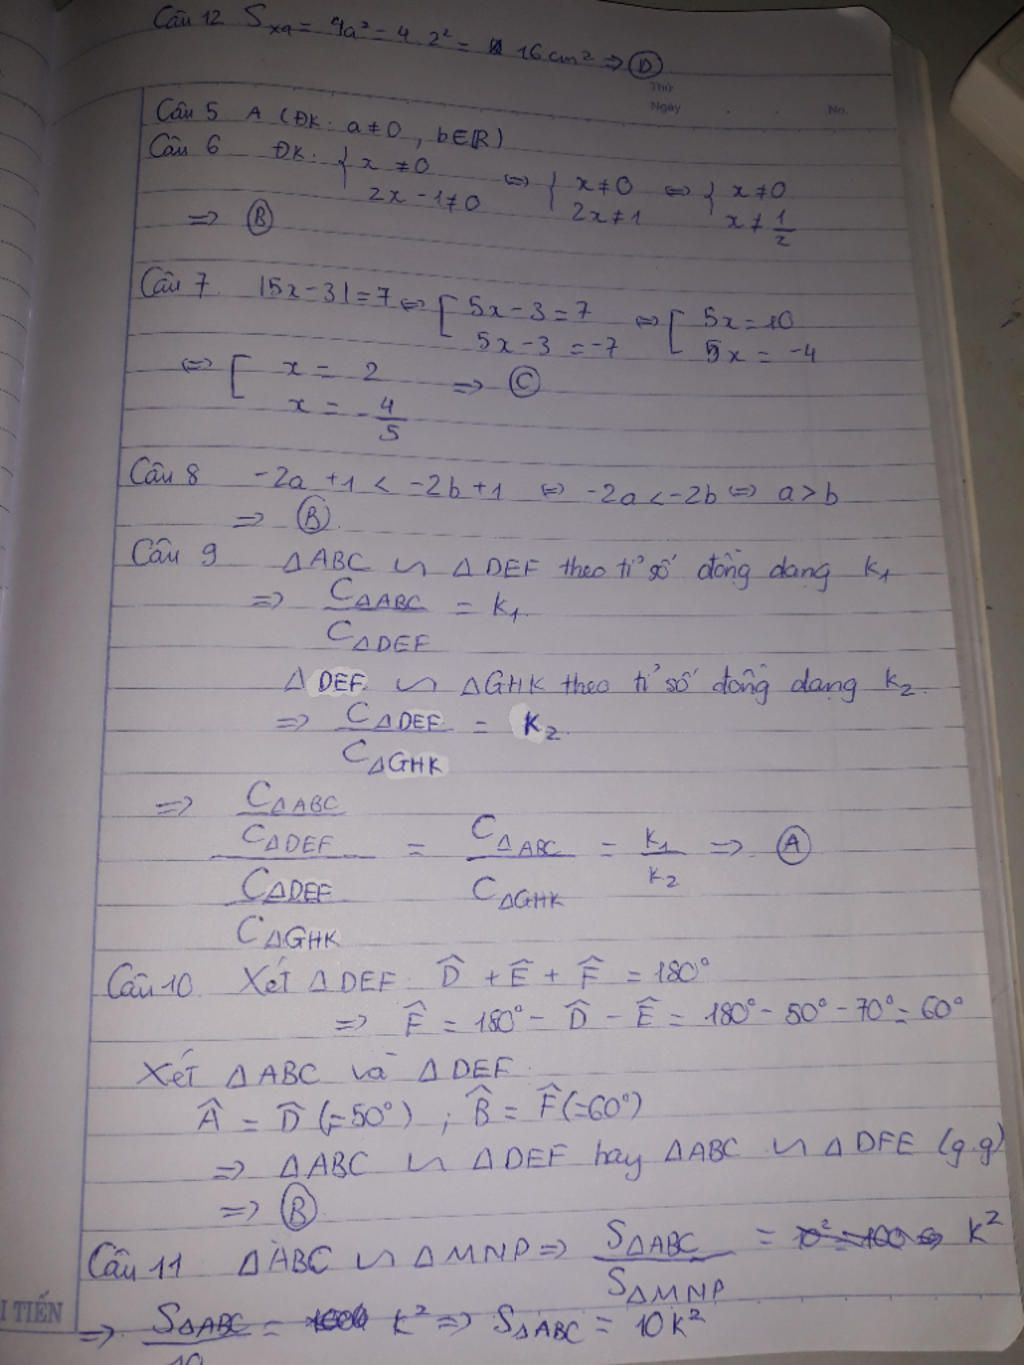 Câu 12 Sxq = 4a² = 4.2² = 16cm² => D
Thứ
Ngày . . No.
Câu 5 A (ĐK: a≠0, b∈R)
Câu 6 ĐK: { x ≠0 <=> { x≠0 <=> { x≠0
2x - 1≠0 2x≠1 x≠ 1/2
=> B
Câu 7 |5x-3|=7 <=> [ 5x-3=7 <=> [ 5x=10
5x-3=-7 5x=-4
<=> [ x = 2 => C
x = -4/5
Câu 8 -2a +1 < -2b+1 <=> -2a<-2b <=> a>b
=> B
Câu 9 ΔABC ∽ ΔDEF theo tỉ số đồng dạng k1
=> CΔABC / CΔDEF = k1
ΔDEF ∽ ΔGHK theo tỉ số đồng dạng k2
=> CΔDEF / CΔGHK = k2
=> CΔABC / CΔDEF / CΔDEF / CΔGHK = CΔABC / CΔGHK = k1 / k2 => A
Câu 10 Xét ΔDEF: D̂ + Ê + F̂ = 180°
=> F̂ = 180° - D̂ - Ê = 180° - 50° - 70° = 60°
Xét ΔABC và ΔDEF
Â = D̂ (=50°) ; B̂ = F̂ (=60°)
=> ΔABC ∽ ΔDEF hay ΔABC ∽ ΔDFE (g.g)
=> B
Câu 11 ΔABC ∽ ΔMNP => SΔABC / SΔMNP = k²
I TIẾN
=> SΔABC / 10 = k² => SΔABC = 10k²